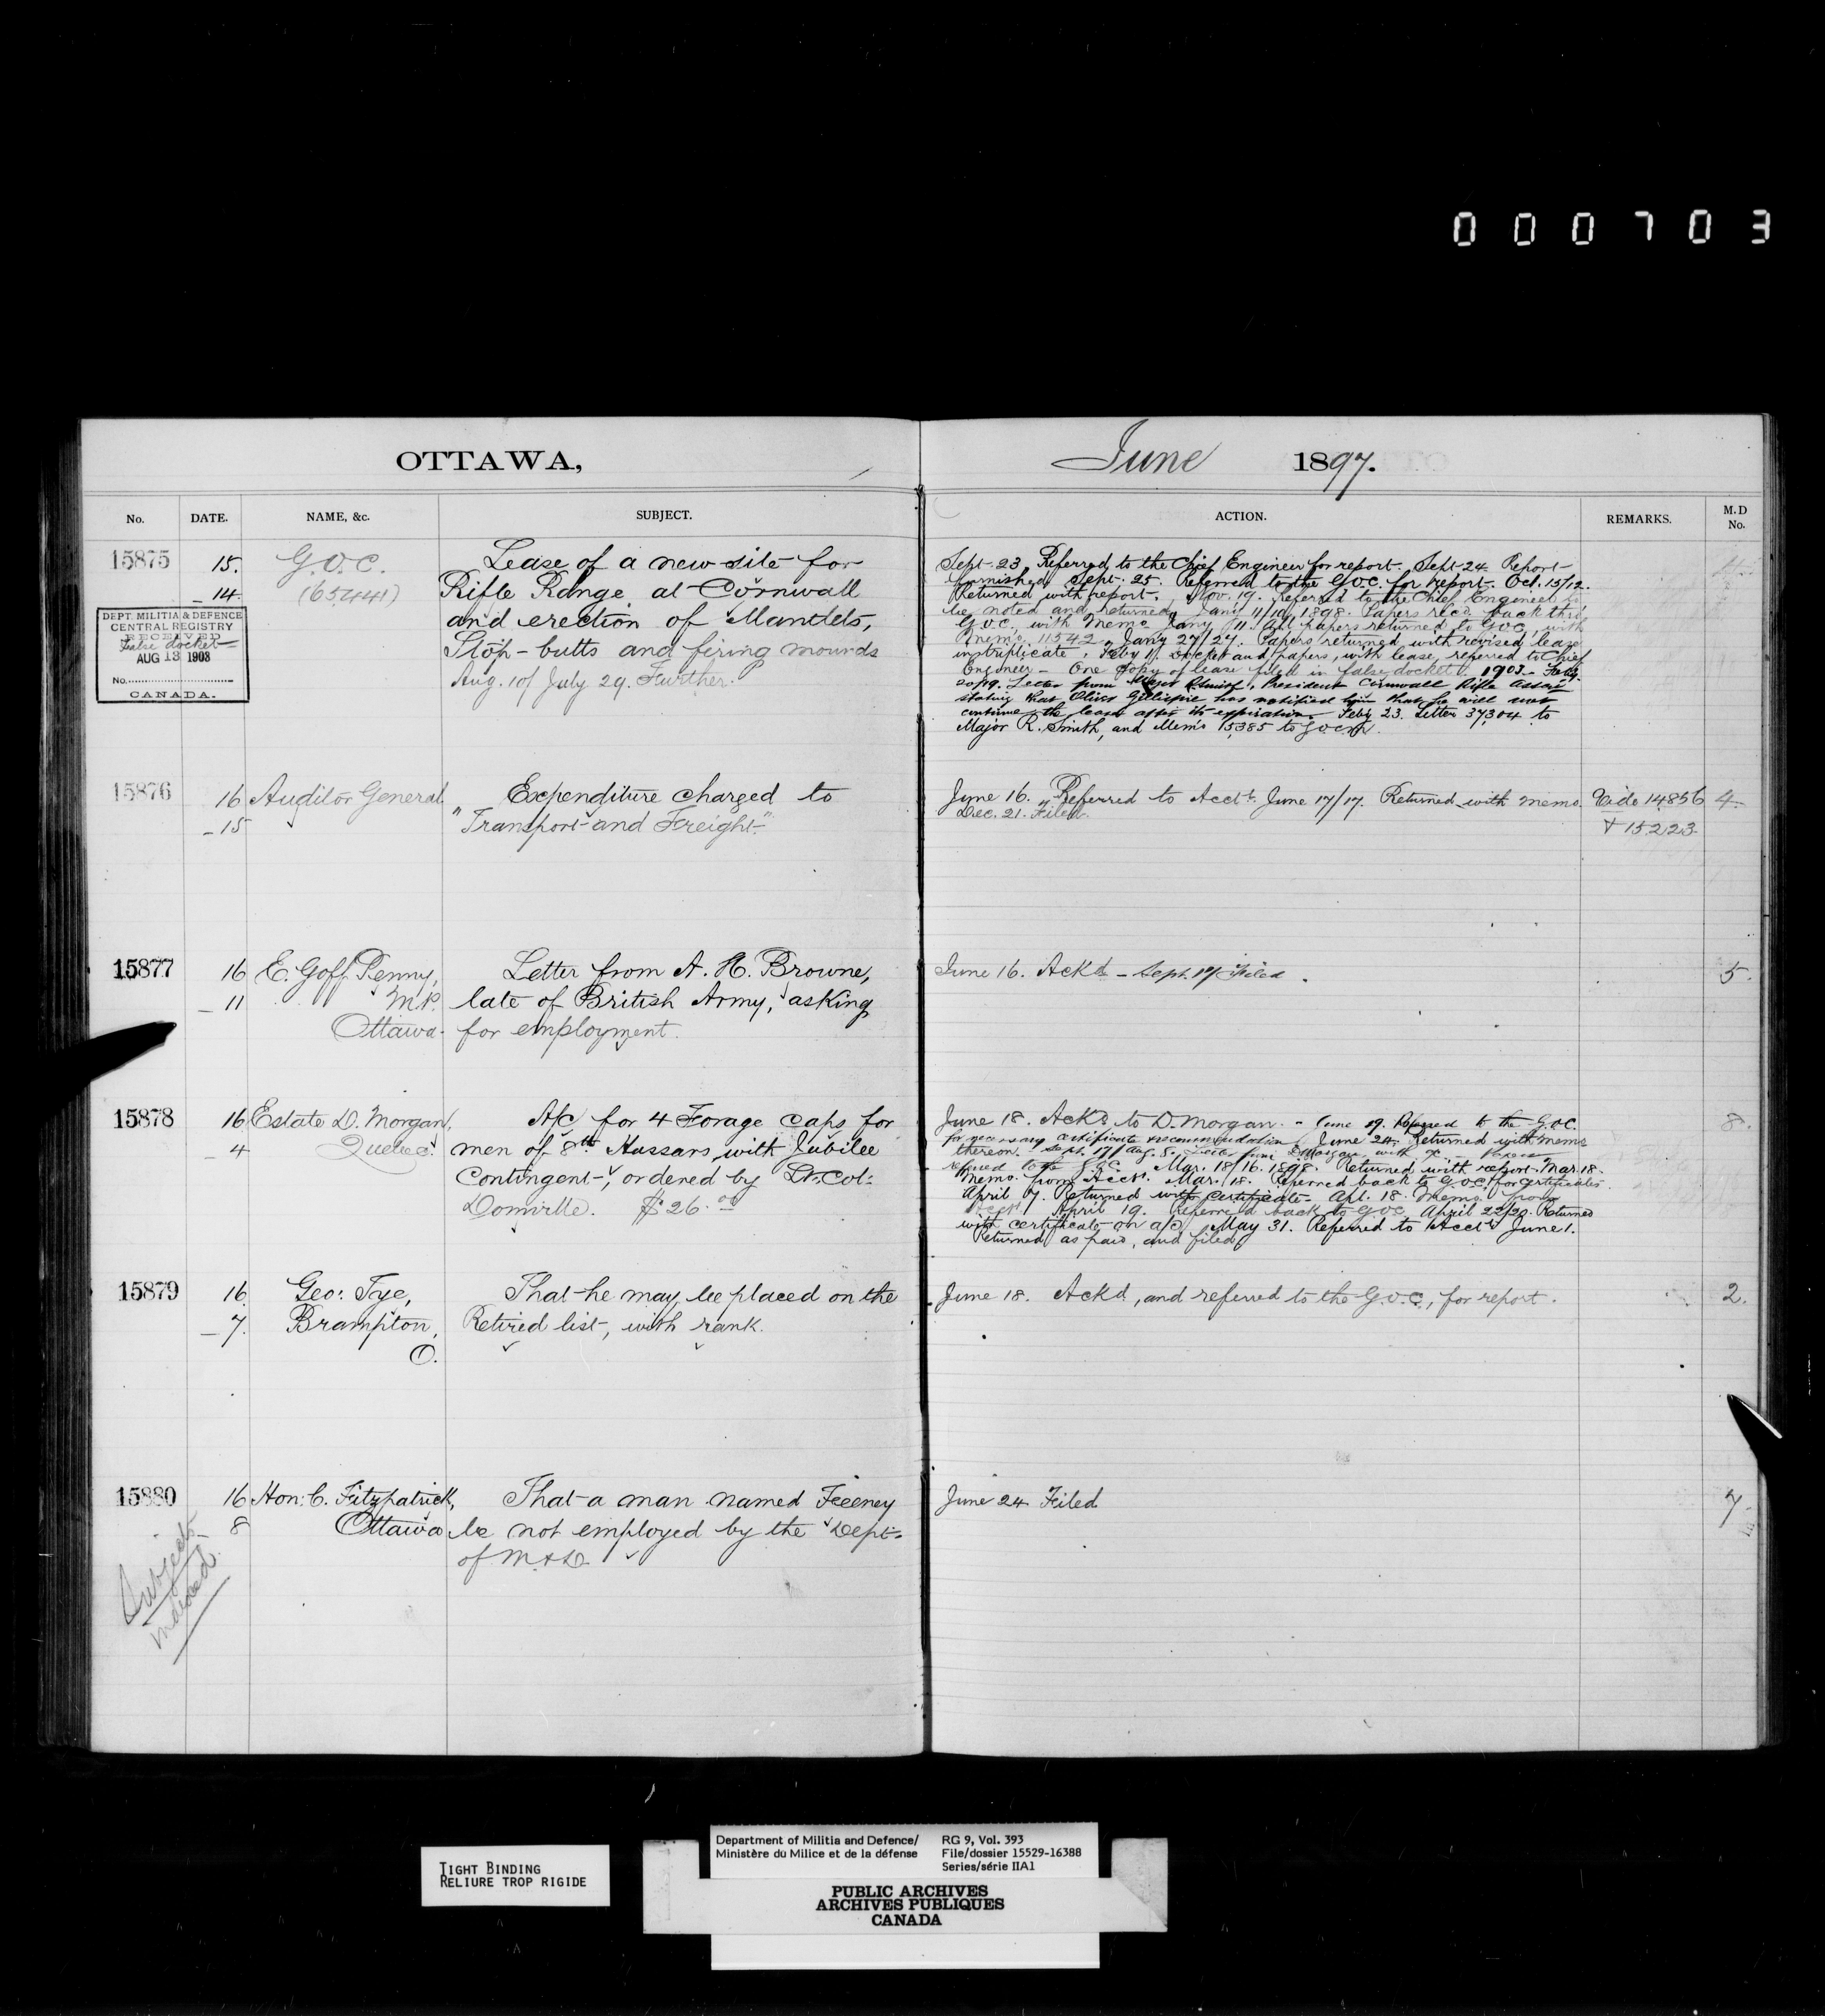 000703
OTTAWA, June 1897.
No. DATE. NAME, &c. SUBJECT. ACTION. REMARKS. M.D No.
15875 15. G.O.C. Lease of a new site for
14. (65441) Rifle Range at Cornwall
and erection of Mantlets,
Stop-butts and firing mounds
Aug. 10/ July 29. Further.
DEPT. MILITIA & DEFENCE
CENTRAL REGISTRY
RECEIVED
False docket
AUG 13 1903
No.
CANADA.
Sept. 23, Referred to the Chief Engineer for report. Sept 24 Report
furnished Sept. 25. Referred to the G.O.C. for report. Oct. 15/12.
Returned with report. Nov. 19. Referred to the Chief Engineer to
be noted and returned. Jany 11/10/1898. Papers recd back thro'
G.O.C. with Memo Jany 11. All papers returned to G.O.C. with
Memo. 11542. Jany 27/27. Papers returned with revised lease
in triplicate. Feby 11. Docket and papers, with lease, referred to Chief
Engineer - One copy of lease filed in false docket. 1903 - Feby.
20/19. Letter from Major Smith, President Cornwall Rifle Assocn
stating that Oliver Gillespie has notified him that he will not
continue the lease after its expiration. Feby 23. Letter 37304 to
Major R. Smith, and Memo 15385 to G.O.C.
15876 16 Auditor General Expenditure charged to
15 "Transport and Freight"
June 16. Referred to Acct. June 17/17. Returned with memo. Vide 14856 4.
Dec. 21. Filed. & 15223
15877 16 E. Goff Penny, Letter from A. H. Browne,
11 M.P. late of British Army, asking
Ottawa. for employment.
June 16. Ackd - Sept. 17 Filed. 5.
15878 16 Estate D. Morgan, A/c for 4 Forage caps for
4 Quebec. men of 8th Hussars, with Jubilee
Contingent, ordered by Lt. Col:
Domville. $26.00
June 18. Ackd to D. Morgan. - June 19. Referred to the G.O.C. 8.
for necessary certificate recommendation. June 24. Returned with memo
thereon. Sept. 17/ Aug. 8. from D Morgan with
refused to G.O.C. Mar. 18/16. 1898. Returned with report. Mar. 18.
Memo. from Acct. Mar. 18. Referred back to G.O.C. for certificates.
April 7. Returned with certificate. Apl. 18. Memo from
Acct. April 19. Referred back to G.O.C. April 22/20. Returned
with certificate on a/c. May 31. Referred to Acct. June 1.
Returned as paid, and filed.
15879 16 Geo: Tye, That he may be placed on the
7. Brampton, Retired list, with rank.
O.
June 18. Ackd, and referred to the G.O.C., for report. 2.
15880 16 Hon: C. Fitzpatrick, That a man named Feeney
8 Ottawa be not employed by the Dept.
of M & D
June 24 Filed 7.
Subjects
indexed.
TIGHT BINDING
RELIURE TROP RIGIDE
Department of Militia and Defence/ RG 9, Vol. 393
Ministère du Milice et de la défense File/dossier 15529-16388
Series/série IIA1
PUBLIC ARCHIVES
ARCHIVES PUBLIQUES
CANADA